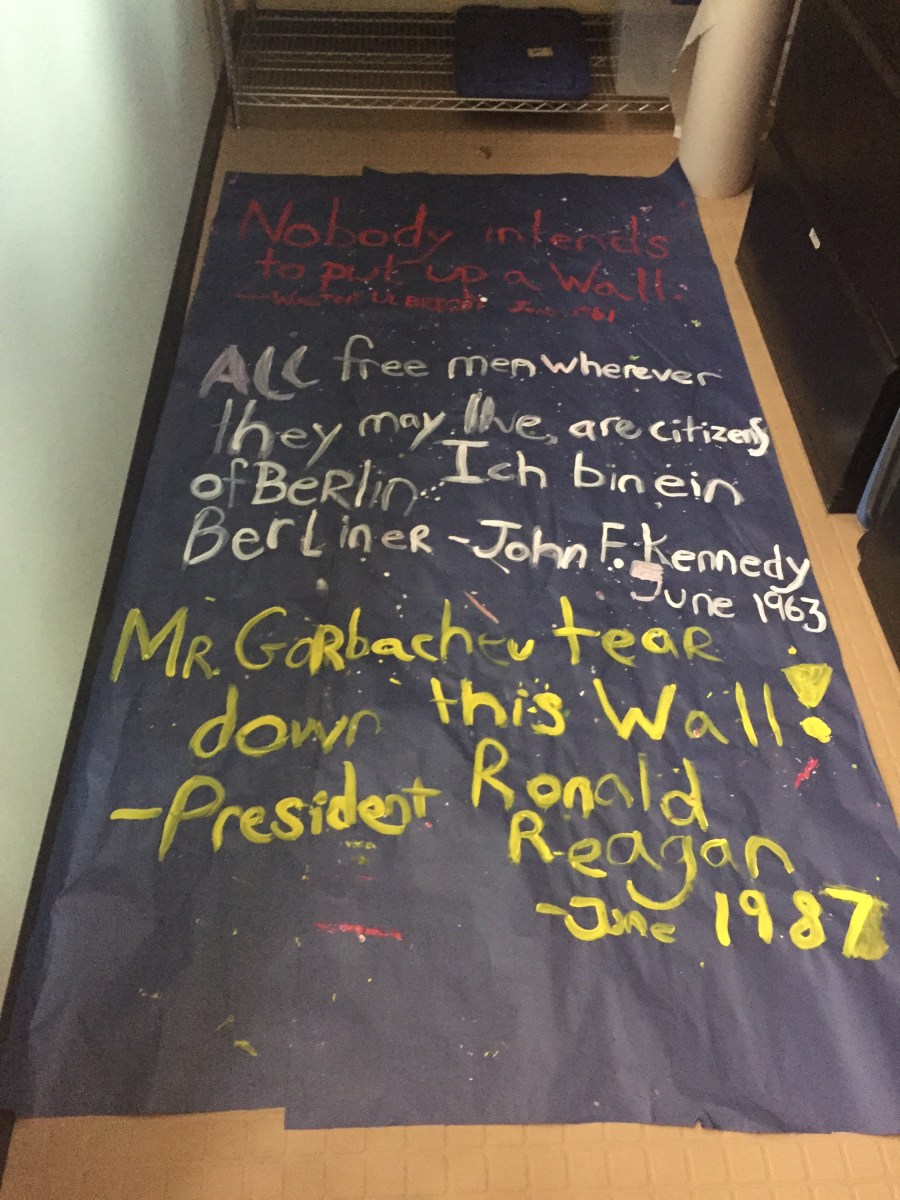 Nobody intends
to put up a Wall.
—Walter Ulbricht June 1961
All free men wherever
they may live, are citizens
of Berlin. Ich bin ein
Berliner -John F. Kennedy
June 1963
Mr. Gorbachev tear
down this Wall!
-President Ronald
Reagan
-June 1987